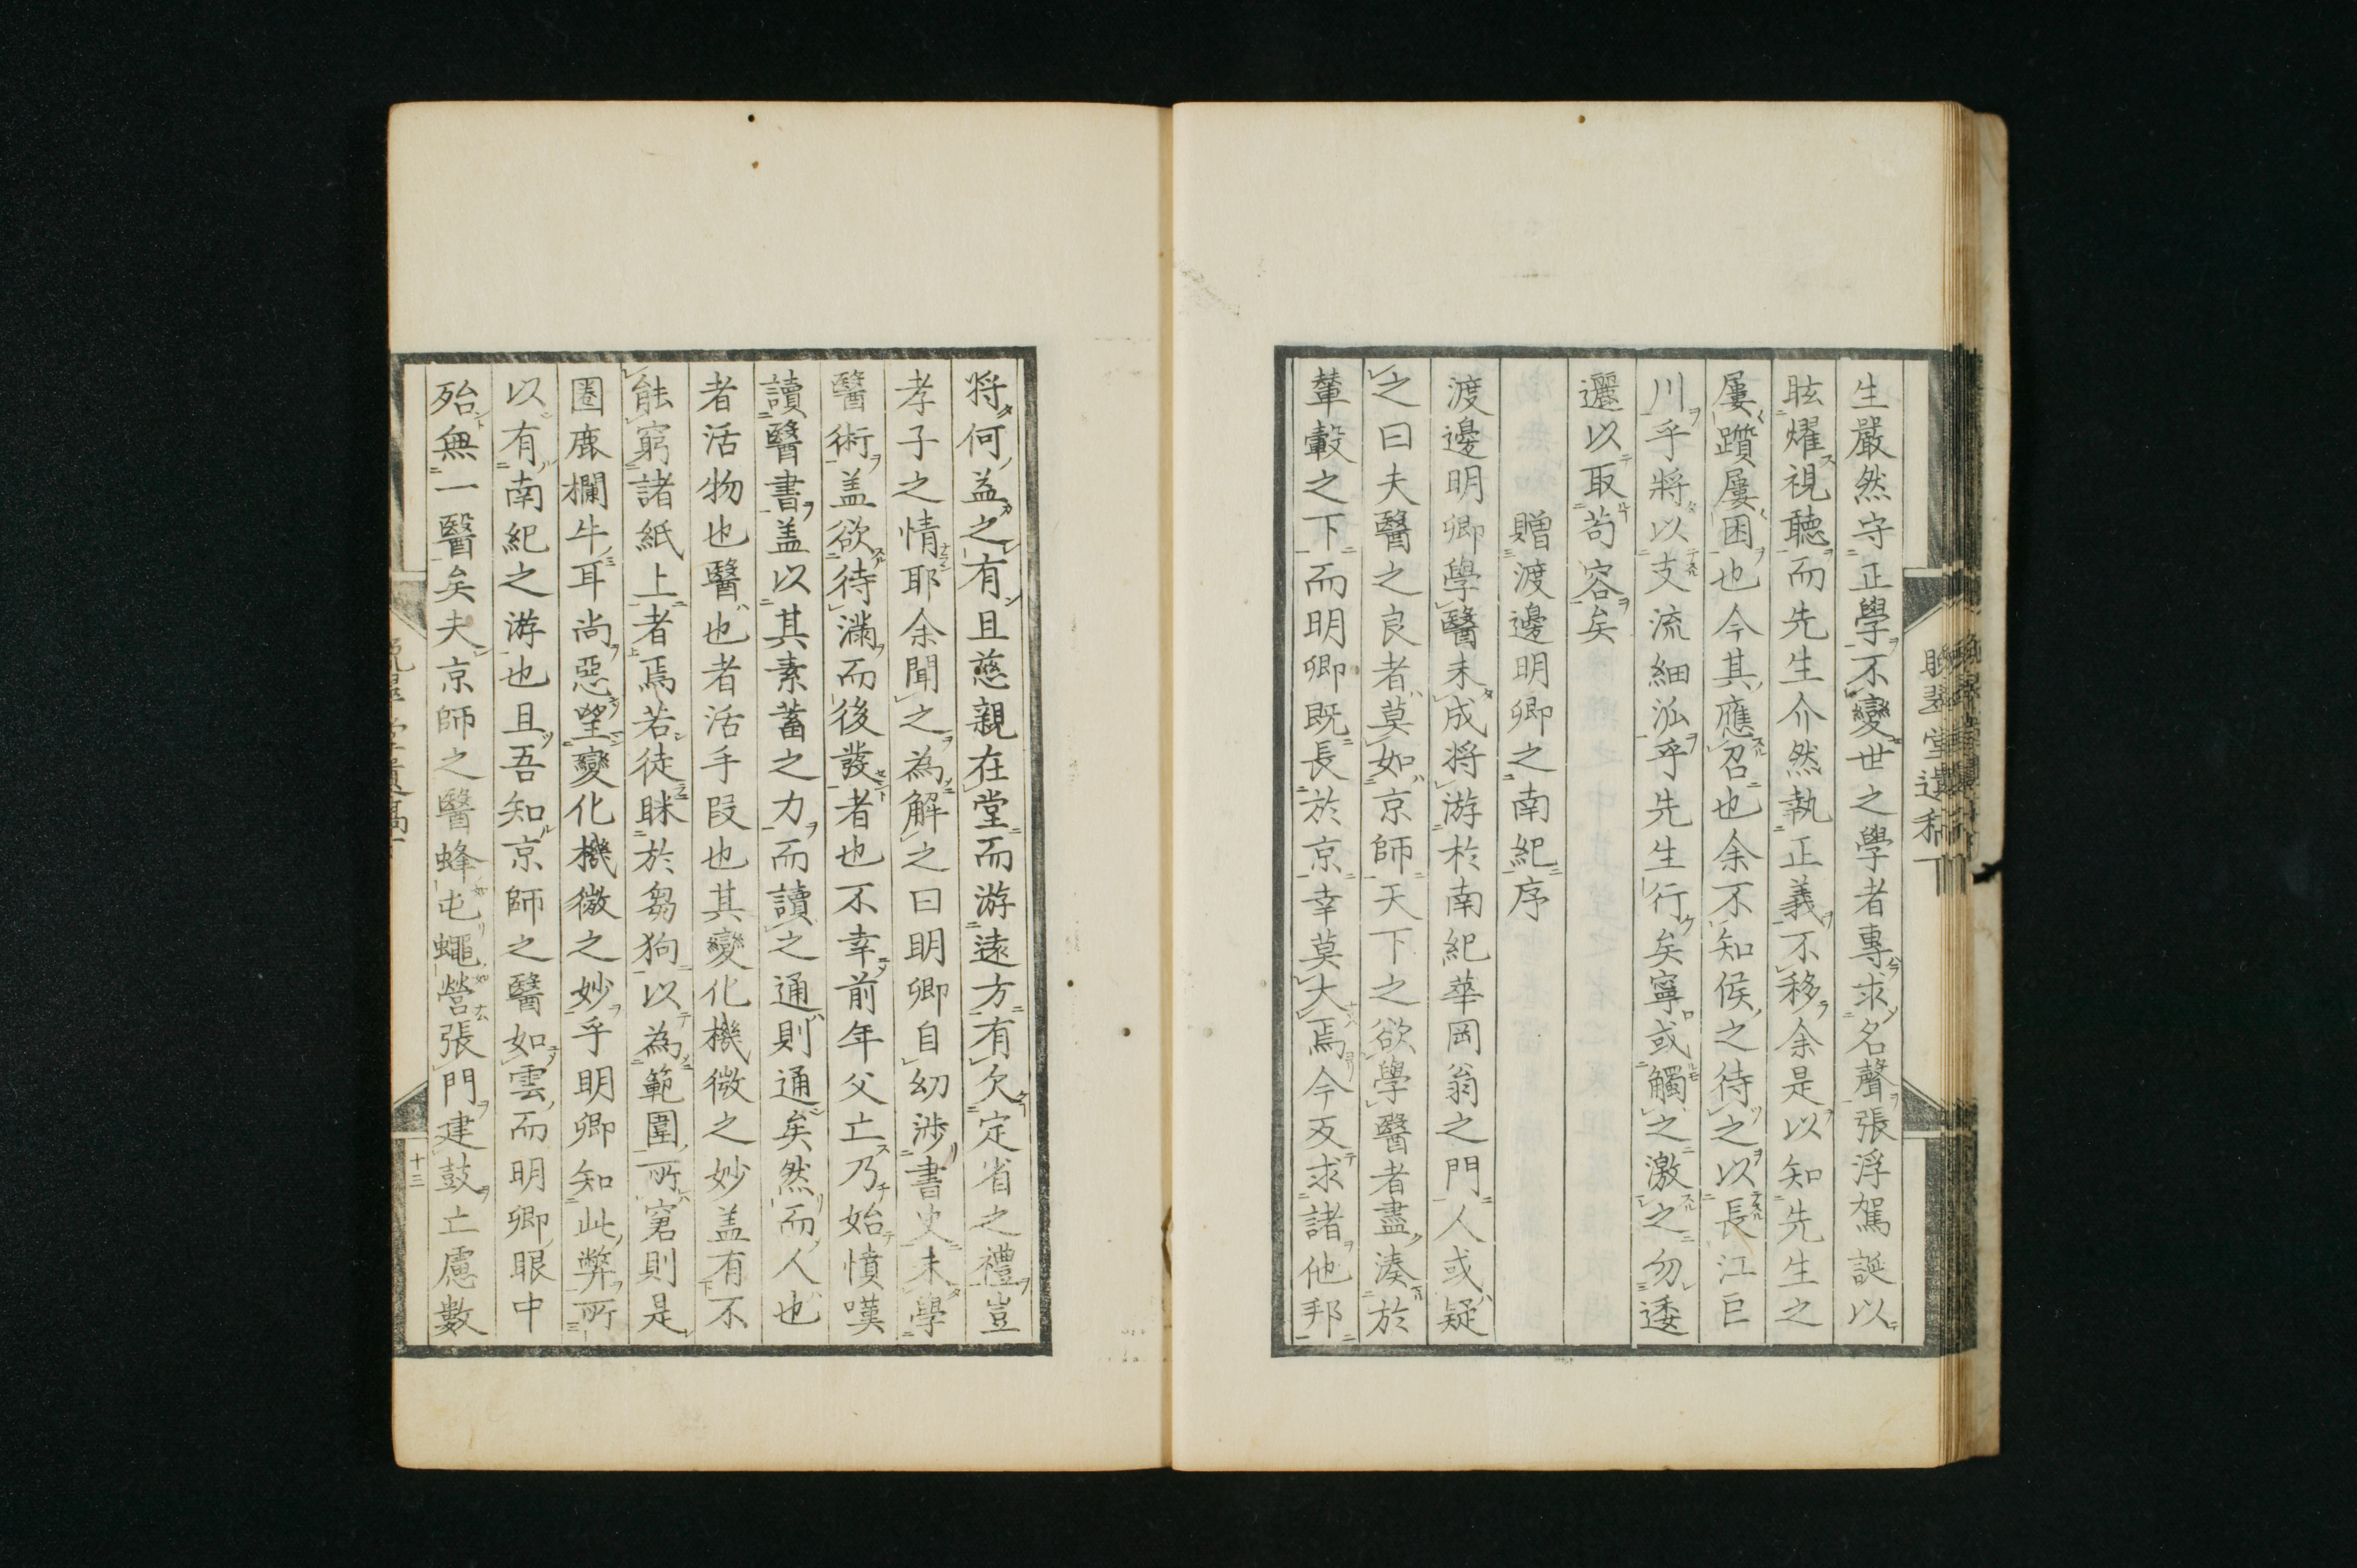 生嚴然守正學不變世之學者專求名聲張浮駕誕以
眩燿視聽而先生介然執正義不移余是以知先生之
屢躓屢困也今其應召也余不知侯之待之以長江巨
川乎將以支流細泒乎先生行矣寧或觸之激之勿逶
邐以取苟容矣
贈渡邊明卿之南紀序
渡邊明卿學醫未成將游於南紀華岡翁之門人或疑
之曰夫醫之良者莫如京師天下之欲學醫者盡湊於
輦轂之下而明卿既長於京幸莫大焉今反求諸他邦
將何益之有且慈親在堂而游遠方有欠定省之禮豈
孝子之情耶余聞之為解之曰明卿自幼涉書史未學
醫術盖欲待滿而後發者也不幸前年父亡乃始憤嘆
讀醫書盖以其素蓄之力而讀之通則通矣然而人也
者活物也醫也者活手段也其變化機微之妙盖有不
能窮諸紙上者焉若徒眯於芻狗以為範圍所窘則是
圈鹿欄牛耳尚惡望變化機微之妙乎明卿知此弊所
以有南紀之游也且吾知京師之醫如雲而明卿眼中
殆無一醫矣夫京師之醫蜂屯蠅營張門建鼓亡慮數
十三